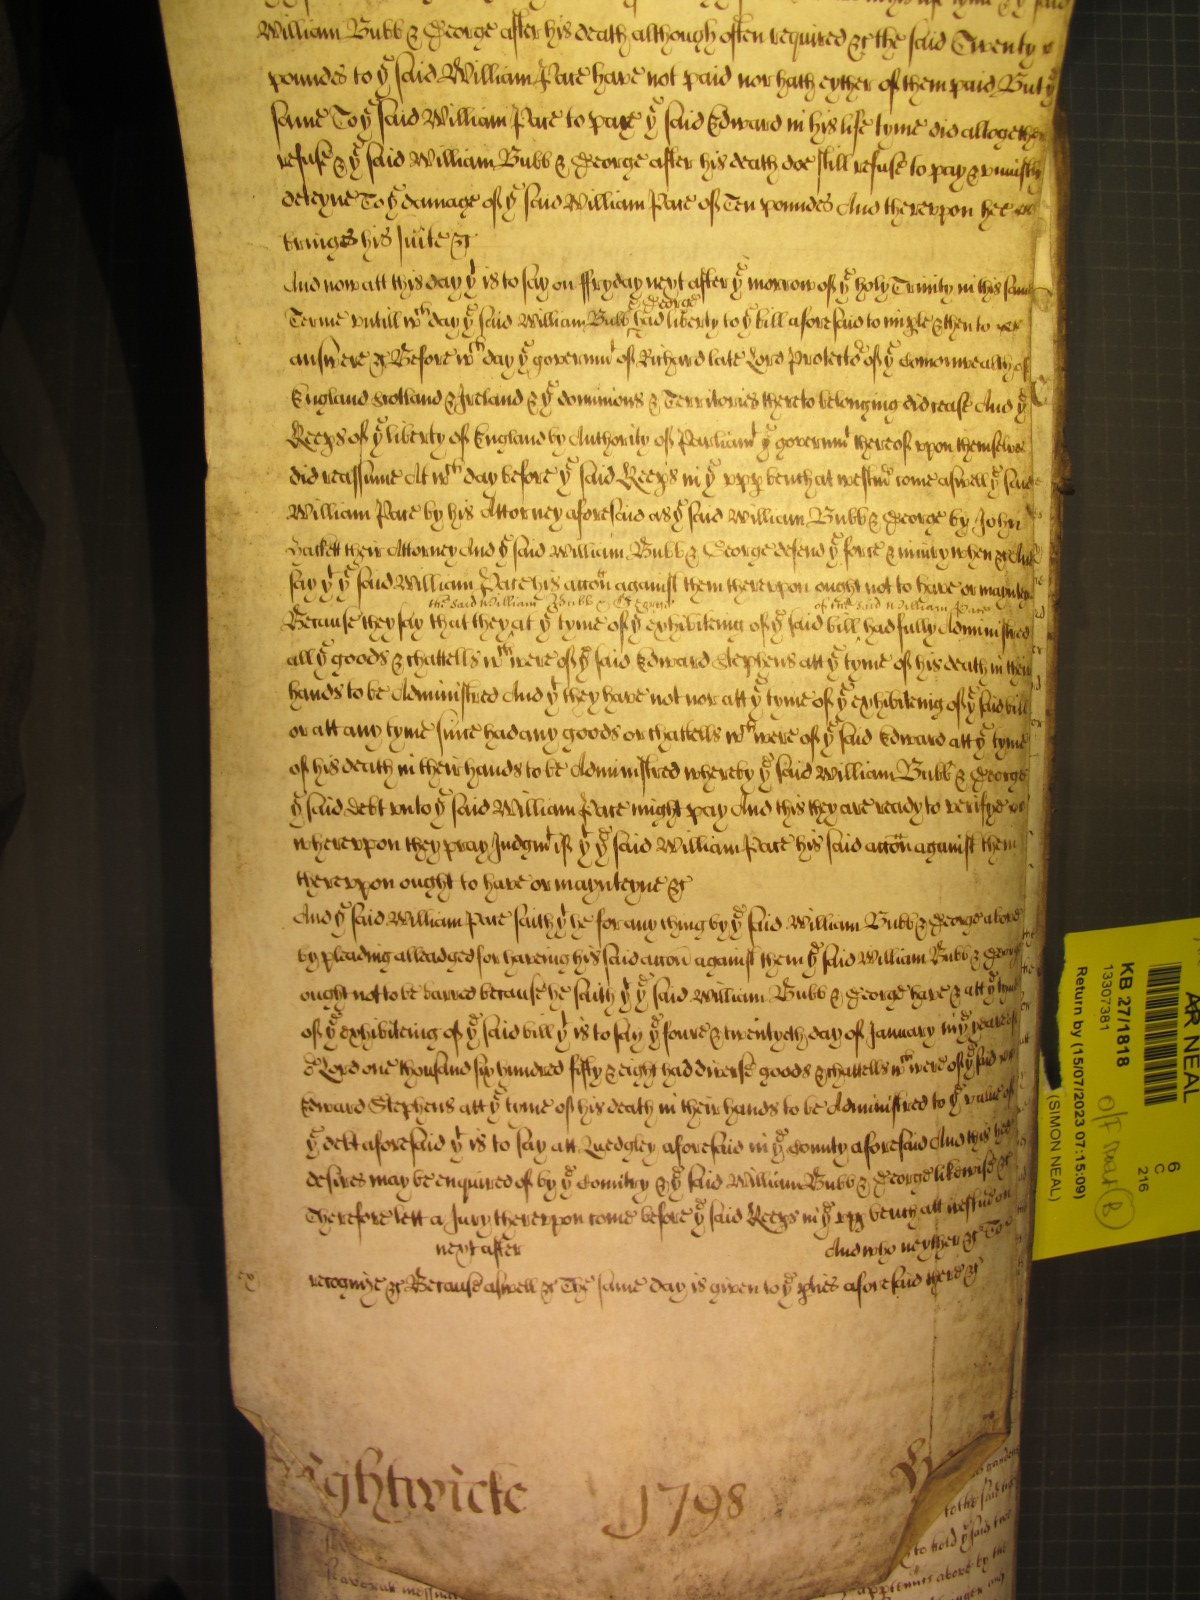 William Bubb & George after his death although often required &c the said Twenty
poundes to ye said William Pace have not paid nor hath eyther of them paid But ye
same To ye said William Pace to pay ye said Edward in his life tyme did altogether
refuse & ye said William Bubb & George after his death doe still refuse to pay & uniustly
deteyne To ye damage of ye said William Pace of Ten poundes And therevpon hee
brings his suite &c
And now att this day yt is to say on ffryday next after ye morrow of ye holy Trinity in this same
& George
Terme vntill wch day ye said William Bubb had liberty to ye bill aforesaid to imple & then to
answere &c Before wch day ye governmt of Richard late Lord Protector of ye Comonwealth of
England Scotland & Ireland & ye dominions & Territories thereto belonging did cease And ye
Keeps of ye liberty of England by Authority of Parliamt ye governmt thereof vpon themselves
did reassume At wch day before ye said Keeps in ye vpp bench at westmr come aswell ye said
William Pace by his Attorney aforesaid as ye said William Bubb & George by John
Hackett their Attorney And ye said William Bubb & George defend ye force & iniury when &c And
say yt ye said William Pace his accon against them therevpon ought not to have or maynteyne
the said William Bubb & George of the said William Pace
Because they say that they at ye tyme of ye exhibiteing of ye said bill had fully Administred
all ye goods & chattells wch were of ye said Edward Stephens att ye tyme of his death in their
hands to be Administred And yt they have not nor att ye tyme of ye exhibiteing of ye said bill
or att any tyme since had any goods or chattells wch were of ye said Edward att ye tyme
of his death in their hands to be Administred whereby ye said William Bubb & George
ye said debt vnto ye said William Pace might pay And this they are ready to verifye
wherevpon they pray Judgmt if yt ye said William Pace his said accon against them
therevpon ought to have or maynteyne &c
And ye said William Pace saith yt he for any thing by ye said William Bubb & George above
by pleading alleadged for haveing his said accon against them ye said William Bubb & George
ought not to be barred because he saith yt ye said William Bubb & George have & att ye tyme
of ye exhibiteing of ye said bill yt is to say ye foure & twentyeth day of January in ye yeare of
Lord one thousand six hundred fifty & eight had diverse goods & chattells wch were of ye said
Edward Stephens att ye tyme of his death in their hands to be Administred to ye value of
ye debt aforesaid yt is to say att Quedgley aforesaid in ye County aforesaid And this hee
desires may be enquired of by ye Countrey & ye said William Bubb & George likewise &c
Therefore lett a Jury therevpon come before ye said Keeps in ye vpp bench att westmr on
next after And who neyther &c To
recognize &c Because aswell &c The same day is given to ye pties aforesaid there &c
ightwicke 1798 W
to the said
to hold ye said two
above by the
AR NEAL
KB 27/1818
13307381
Return by (15/07/2023 07:15:09)
(SIMON NEAL)
6
C
216
B